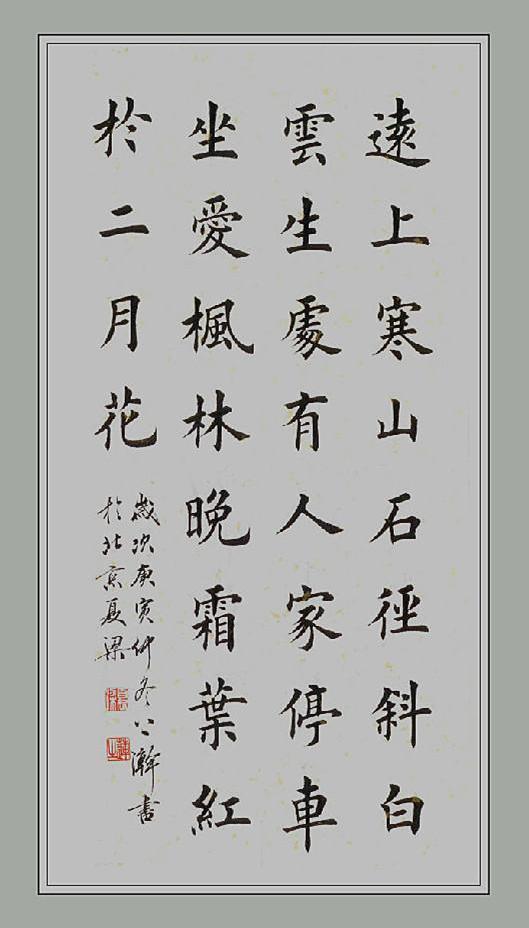 遠上寒山石徑斜白
雲生處有人家停車
坐愛楓林晚霜葉紅
於二月花
歲次庚寅仲冬八瀚書
於北京夏梁